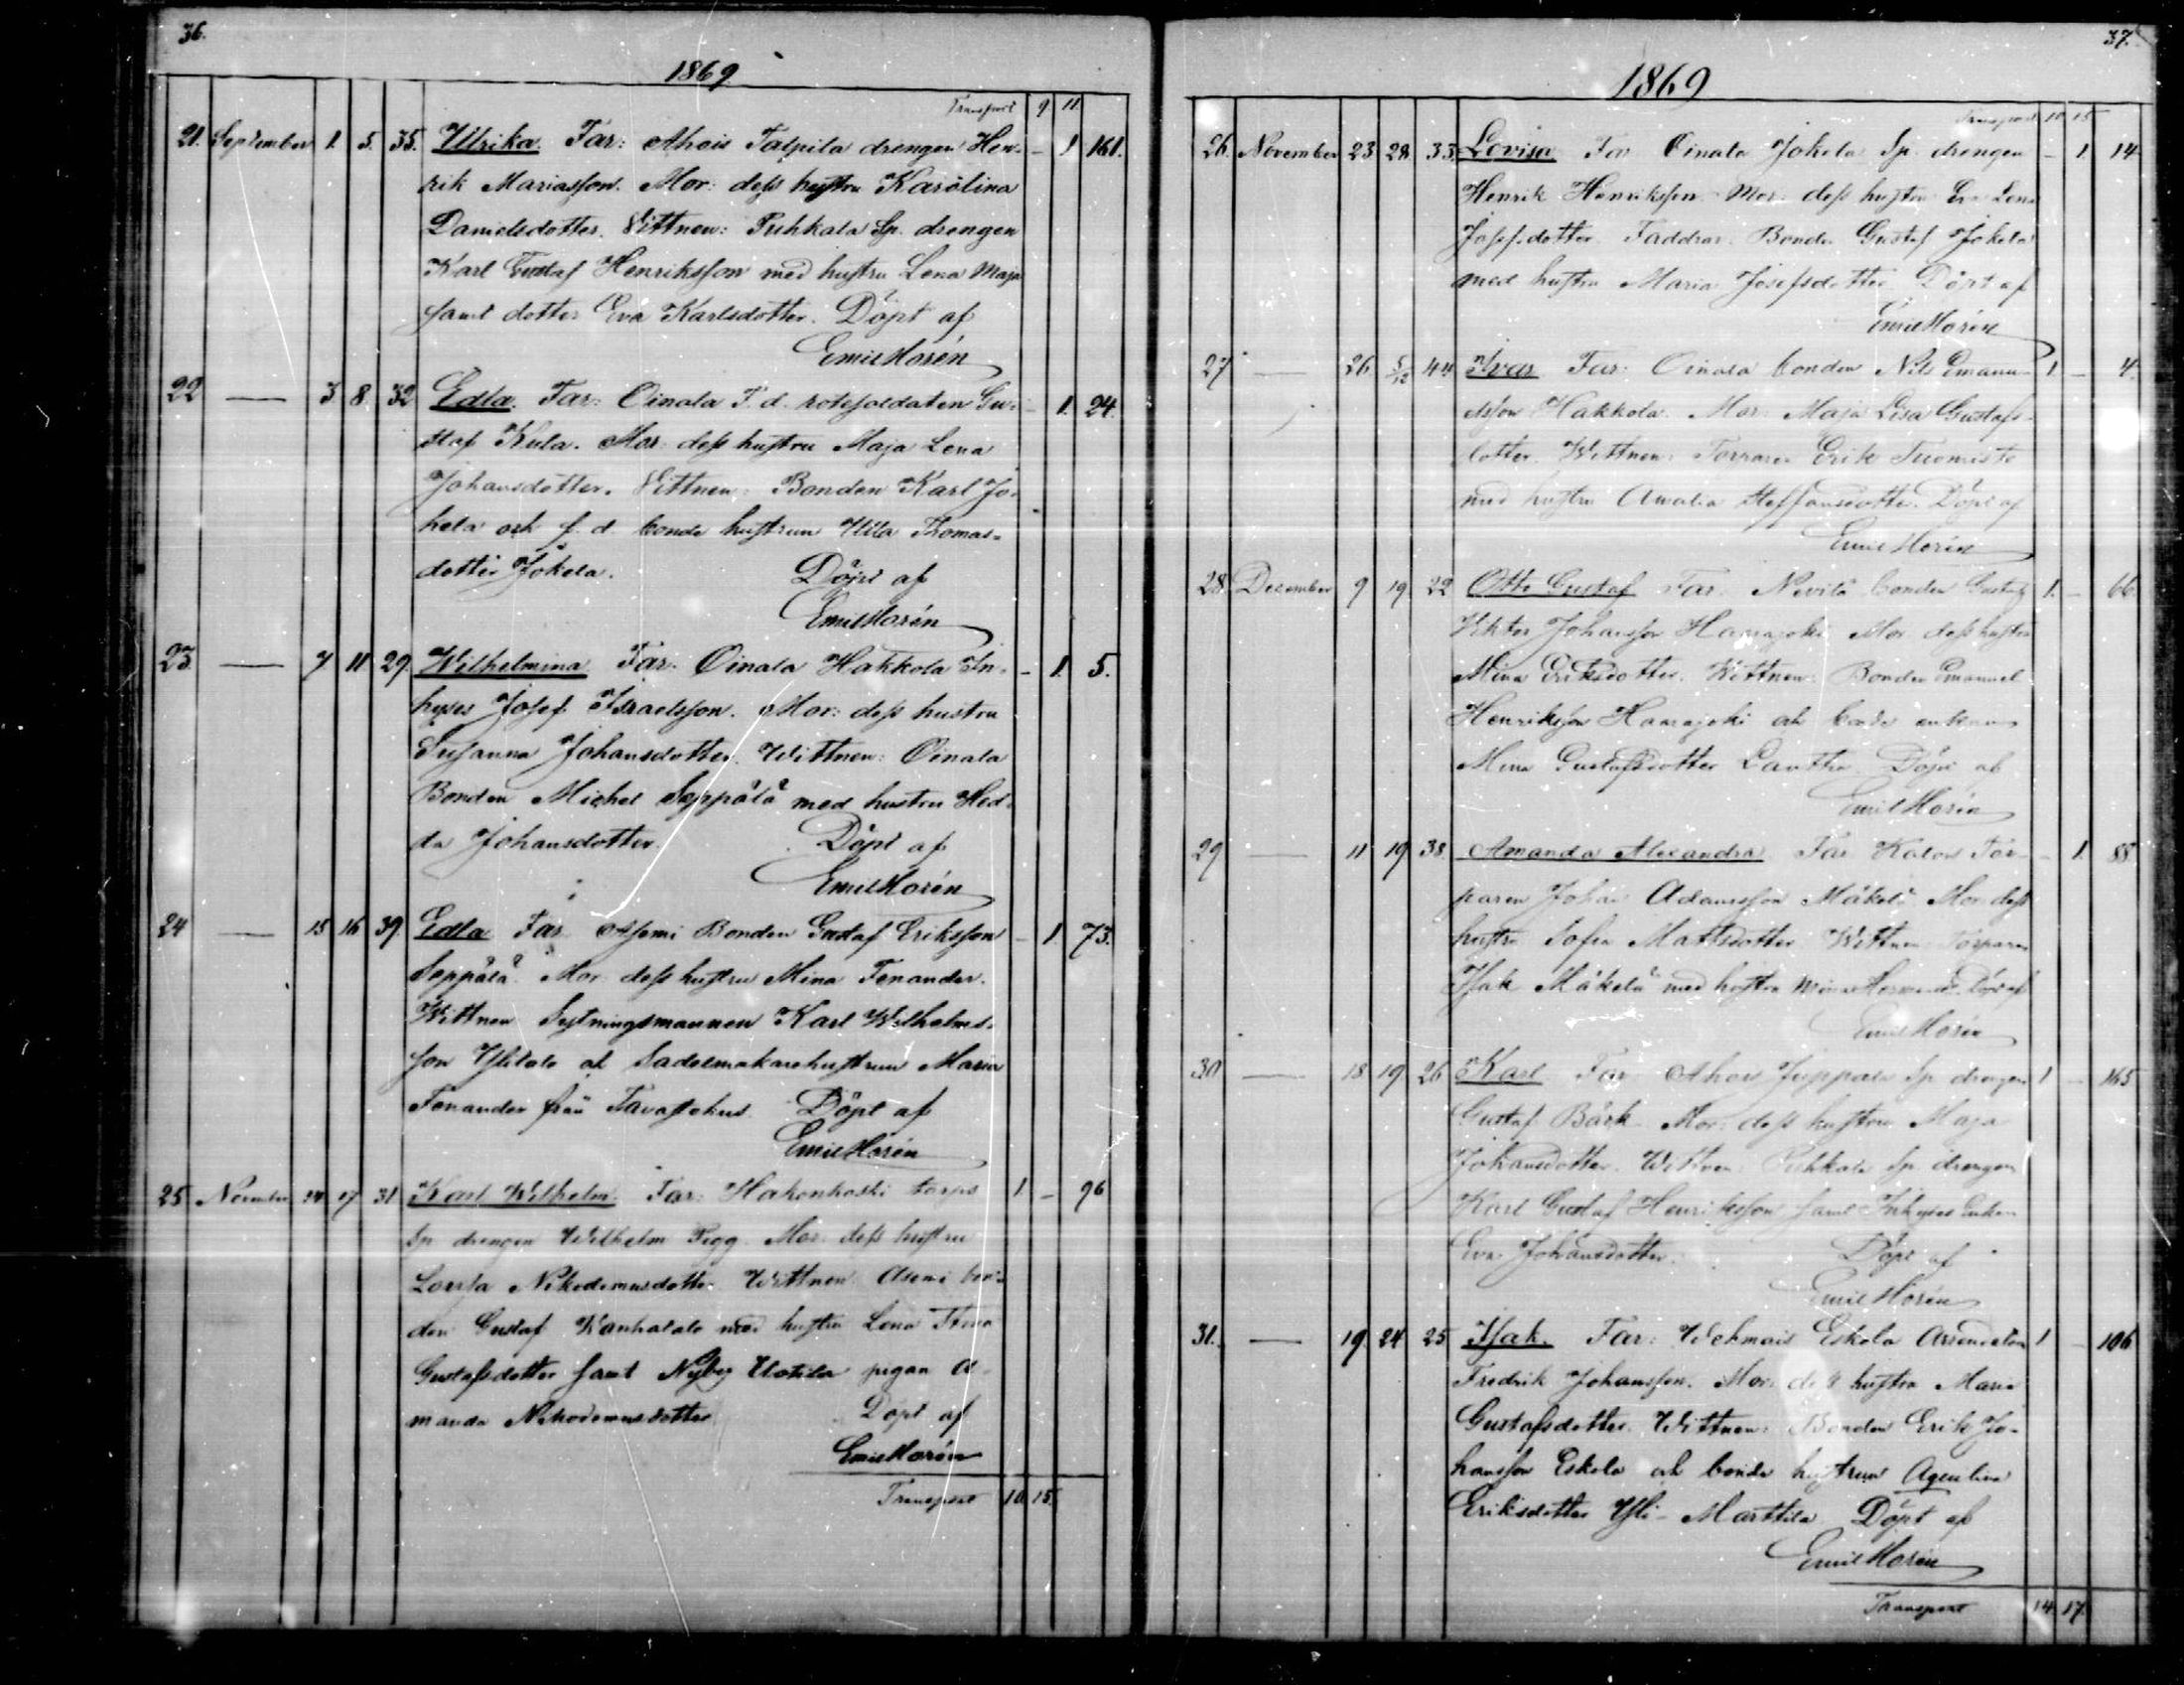 36.
1869
Transport 9 11
21. September 1. 5. 35. Ulrika. Far: Ahois Talpila drengen Hen- – 1 161.
rik Mariasson. Mor: dess hustru Karolina
Danielsdotter. Vittnen: Puhkala Sp. drengen
Karl Gustaf Henriksson med hustru Lena Maja
samt dotter Eva Karlsdotter. Döpt af
Emil Horén
22 — 3 8 32 Edla. Far: Oinala F. d. rotesoldaten Gu- – 1. 24.
staf Kula. Mor: dess hustru Maja Lena
Johansdotter. Vittnen: Bonden Karl Jo-
kela och f. d. bonde hustrun Ulla Thomas-
dotter Jokela. Döpt af
Emil Horén
23. — 7 11 29 Wilhelmina Far: Oinala Hakkola In- – 1. 5.
hyses Josef Israelsson. Mor: dess hustru
Susanna Johansdotter. Wittnen: Oinala
Bonden Michel Seppälä med hustru Hed-
da Johansdotter. Döpt af
Emil Horén
24 — 15 16 39 Edla Far Asemi Bonden Gustaf Eriksson – 1. 73.
Seppälä. Mor dess hustru Mina Fenander.
Wittnen Sytningsmannen Karl Wilhelms-
son Ylitalo ok Sadelmakarehustrun Maria
Fenander från Tavastehus. Döpt af
Emil Horén
25 November 24 27 31 Karl Wilhelm. Far: Hakonkoski torps 1. – 96
Sp drengen Wilhelm Pegg. Mor: dess hustru
Lovisa Nikodemusdotter. Wittnen Asemi bon-
den Gustaf Wanhatalo med hustru Lena Stina
Gustafsdotter samt Nyby Uotila pigan A-
manda Nikodemusdotter Döpt af
Emil Horén
Transport 10. 15.
37.
1869
Transport 10 15
26. November 23 28 33. Lovisa Far Oinala Jokela Sp. drengen – 1. 14
Henrik Henriksson Mor: dess hustru Eva Lena
Josefsdotter. Faddrar. Bonden Gustaf Jokela
med hustru Maria Josefsdotter Döpt af
Emil Horén
27 — 26 5/12 44 Ivar Far: Oinala bonden Nils Emanu- 1 – 4.
elsson Hakkola. Mor: Maja Lisa Gustafs-
dotter. Wittnen: Torparen Erik Tuomisto
med hustru Amalia Steffansdotter. Döpt af
Emil Horén
28. December 9 19 22 Otto Gustaf Far. Nevilä bonden Gustaf 1. – 66
Viktor Johansson Haarajoki Mor dess hustru
Mina Eriksdotter. Wittnen: Bonden Emanuel
Henriksson Haarajoki ok bonde enkan
Mina Gustafsdotter Lauttia. Döpt af
Emil Horén
29 — 11 19 38 Amanda Alexandra Far Talpila Tor- – 1. 88
paren Johan Adamsson Mäkelä Mor dess
hustru Sofia Mattsdotter Wittnen Torparen
Isak Mäkelä med hustru Mina Döpt af
Emil Horén
30 — 18 19 26 Karl Far Ahois Juppala Sp drengen 1 – 165
Gustaf Bärk Mor: dess hustru Maja
Johansdotter. Wittnen: Puhkala Sp. drengen
Karl Gustaf Henriksson samt Inhyses Enkan
Eva Johansdotter. Döpt af
Emil Horén
31. — 19 24 25 Isak. Far: Wehmais Eskola Arrendatorn 1 – 106
Fredrik Johansson. Mor: dess hustru Maria
Gustafsdotter. Wittnen: Bonden Erik Jo-
hansson Eskola ok bonde hustrun Aqvilina
Eriksdotter Yli-Marttila Döpt af
Emil Horén
Transport 14. 17.